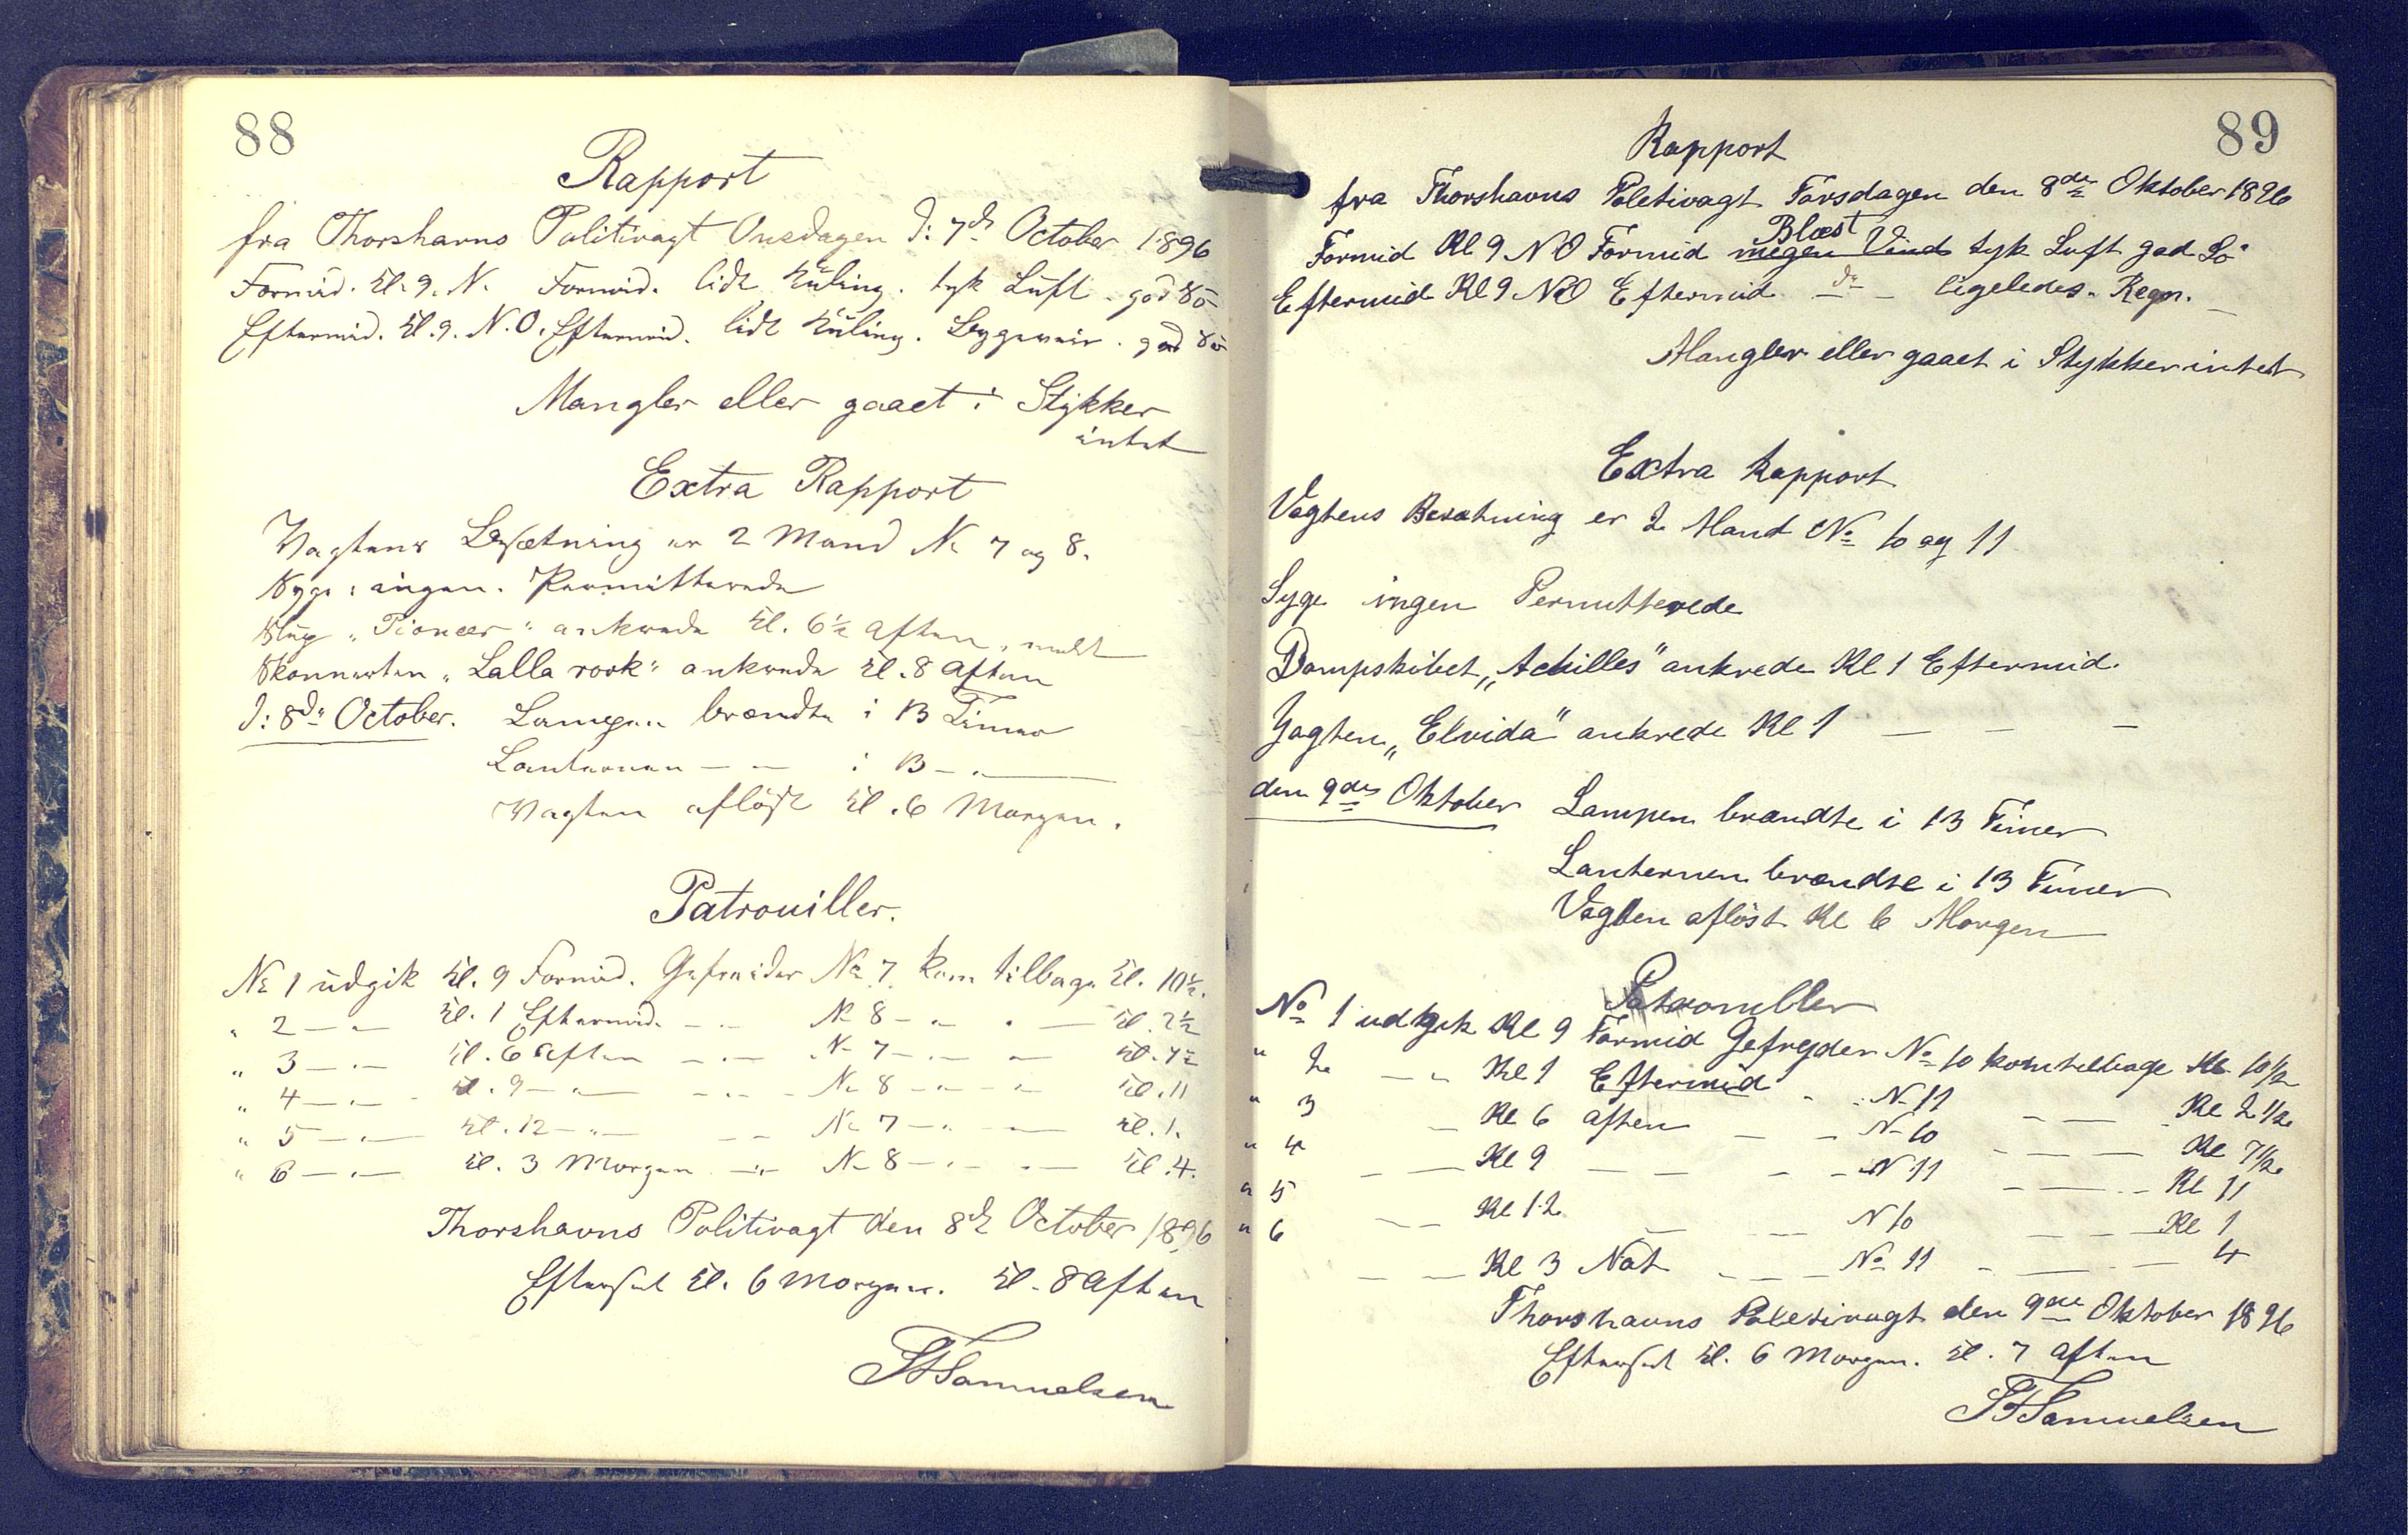 88
Rapport
fra Thorshavns Politivagt Onsdagen d: 7de October 1896
Formid. Kl. 9. N. Formid. lidt Kuling. tyk Luft. god Sö
Eftermid. Kl. 9. N.O. Eftermid. lidt Kuling. Byggeveir. god Sö
Mangler eller gaaet i Stykker
intet
Extra Rapport
Vagtens Besætning er 2 Mand No 7 og 8.
Syge: ingen. Permitterede
Slup "Pioneer" ankrede Kl. 6½ Aften,
Skonnerten "Lalla rook" ankrede Kl. 8 Aften
d: 8de October. Lampen brændte i 13 Timer
Lanternen — — i 13 — " —
Vagten aflöst Kl. 6 Morgen.
Patrouiller.
No 1 udgik Kl. 9 Formid. Gefreider No 7. kom tilbage Kl. 10½.
" 2 — " — Kl. 1 Eftermid. — " — No 8 — " — " — Kl. 2½
" 3 — " — Kl. 6 Aften — " — No 7 — " — " — Kl. 7½
" 4 — " — Kl. 9 — " — — " — No 8 — " — " — Kl. 11
" 5 — " — Kl. 12 — " — — " — No 7 — " — " — Kl. 1.
" 6 — " — Kl. 3 Morgen — " — No 8 — " — " — Kl. 4.
Thorshavns Politivagt den 8de October 1896
Efterset Kl. 6 Morgen. Kl. 8 Aften
Samuelsen
89
Rapport
fra Thorshavns Poletivagt Torsdagen den 8de Oktober 1896
Blæst
Formid Kl 9 NO Formid megen Vind tyk Luft god Sö
Eftermid Kl 9 NO Eftermid — do — ligeledes. Regn.
Mangler eller gaaet i Stykker intet
Extra Rapport
Vagtens Besætning er 2 Mand No 10 og 11
Syge ingen Permitterede
Dampskibet "Achilles" ankrede Kl 1 Eftermid.
Jagten "Elvida" ankrede Kl 1 — — —
den 9de Oktober Lampen brændte i 13 Timer
Lanternen brændte i 13 Timer
Vagten aflöst Kl 6 Morgen
Patrouiller
No 1 udgik Kl 9 Formid Gefreyder No 10 kom tilbage Kl 10½
" 2 — " Kl 1 Eftermid " " N 11 — — Kl 2 1/2
" 3 — Kl 6 aften — — N 10 — — Kl 7½
" 4 — — Kl 9 — — — — N 11 — — Kl 11
" 5 — — Kl 12 — — N 10 — — Kl 1
" 6 — — Kl 3 Nat — — No 11 — — 4
Thorshavns Poletivagt den 9de Oktober 1896
Efterset Kl. 6 Morgen. Kl. 7 Aften
Samuelsen